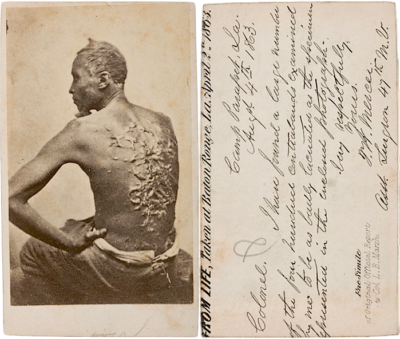 FROM LIFE, Taken at Baton Rouge, La. April 2d 1863.
Camp Parapet, La.
Augt 4th 1863.
Colonel.
I have found a large number
of the four hundred contrabands examined
by me to be as badly lacerated as the specimen
represented in the enclosed photograph.
Very respectfully
Yours.
J. W. Mercer
Asst. Surgeon 47th M.V.
Fac-Simile
of Original Official Report
to Col. L. B. Marsh